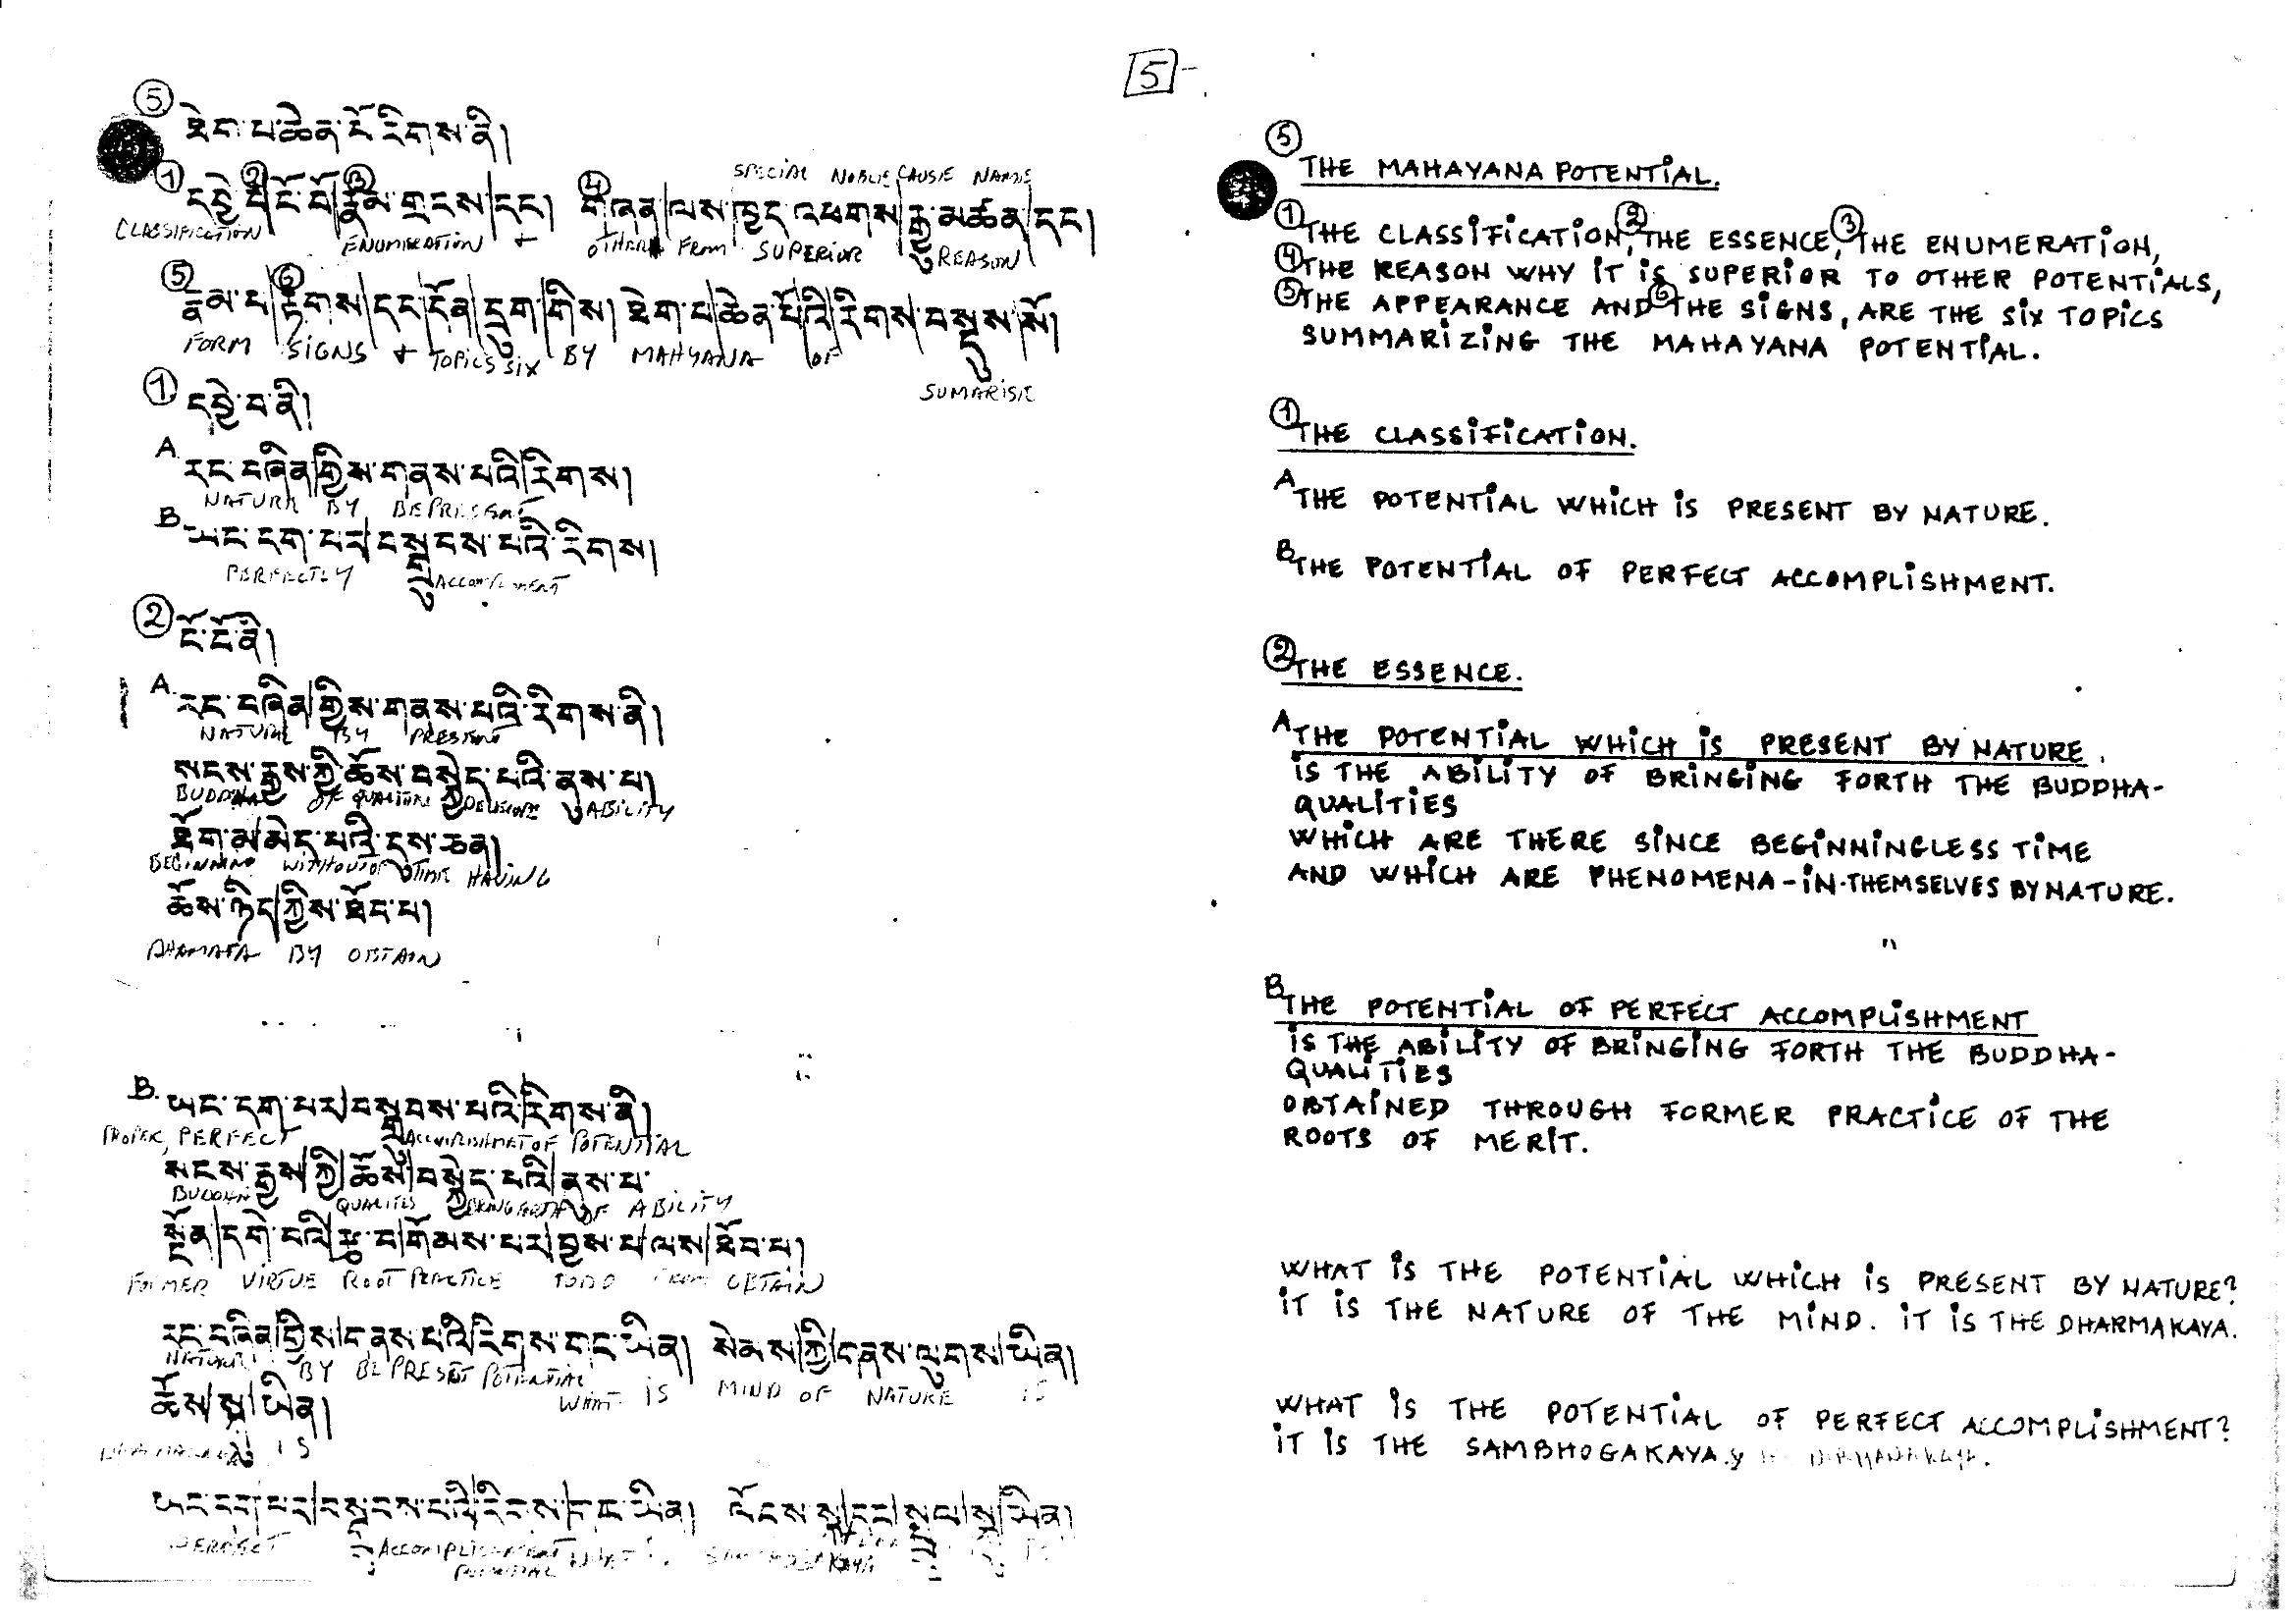 5
⑤
ཐེག་པ་ཆེན་པོ་རིགས་ནི།
SPECIAL NOBLE CAUSE NAME
① ② ③ ④
དབྱེ་བ་ངོ་བོ་རྣམ་གྲངས་དང། གཞན་ལས་ཁྱད་འཕགས་རྒྱུ་མཚན་དང།
CLASSIFICATION ENUMERATION + OTHER FROM SUPERIOR REASON
⑤ ⑥
རྣམ་པ་རྟགས་དང་དོན་དྲུག་གིས། ཐེག་པ་ཆེན་པོའི་རིགས་བསྡུས་སོ།
FORM SIGNS + TOPICS SIX BY MAHYANA OF
SUMARISE
① དབྱེ་བ་ནི།
A. རང་བཞིན་གྱིས་གནས་པའི་རིགས།
NATURE BY BE PRESENT
B. ཡང་དག་པར་བསྒྲུབས་པའི་རིགས།
PERFECTLY
② ངོ་བོ་ནི།
A. རང་བཞིན་གྱིས་གནས་པའི་རིགས་ནི།
NATURE BY PRESENT
སངས་རྒྱས་ཀྱི་ཆོས་བསྐྱེད་པའི་ནུས་པ།
BUDDHA OF ABILITY
ཐོག་མ་མེད་པའི་དུས་ཅན།
BEGINNING WITHOUT OF TIME HAVING
ཆོས་ཉིད་ཀྱིས་ཐོབ་པ།
BY OBTAIN
B. ཡང་དག་པར་བསྒྲུབས་པའི་རིགས་ནི།
PROPER, PERFECT OF POTENTIAL
སངས་རྒྱས་ཀྱི་ཆོས་བསྐྱེད་པའི་ནུས་པ་
BUDDHA QUALITIES OF ABILITY
སྔོན་དགེ་བའི་རྩ་བ་གོམས་པར་བྱས་པ་ལས་ཐོབ་པ།
FORMER VIRTUE ROOT PRACTICE TO DO FROM OBTAIN
རང་བཞིན་གྱིས་གནས་པའི་རིགས་གང་ཡིན། སེམས་ཀྱི་གནས་ལུགས་ཡིན།
NATURE BY BE PRESENT POTENTIAL WHAT IS MIND OF NATURE IS
ཆོས་སྐུ་ཡིན།
IS
ཡང་དག་པར་བསྒྲུབས་པའི་རིགས་གང་ཡིན། ལོངས་སྐུ་དང་སྤྲུལ་སྐུ་ཡིན།
PERFECT ACCOMPLISHMENT
POTENTIAL
⑤
THE MAHAYANA POTENTIAL.
①THE CLASSIFICATION, ②THE ESSENCE, ③THE ENUMERATION,
④THE REASON WHY IT IS SUPERIOR TO OTHER POTENTIALS,
⑤THE APPEARANCE AND ⑥THE SIGNS, ARE THE SIX TOPICS
SUMMARIZING THE MAHAYANA POTENTIAL.
①THE CLASSIFICATION.
A THE POTENTIAL WHICH IS PRESENT BY NATURE.
B THE POTENTIAL OF PERFECT ACCOMPLISHMENT.
②THE ESSENCE.
A THE POTENTIAL WHICH IS PRESENT BY NATURE.
IS THE ABILITY OF BRINGING FORTH THE BUDDHA-
QUALITIES
WHICH ARE THERE SINCE BEGINNINGLESS TIME
AND WHICH ARE PHENOMENA-IN-THEMSELVES BY NATURE.
B THE POTENTIAL OF PERFECT ACCOMPLISHMENT
IS THE ABILITY OF BRINGING FORTH THE BUDDHA-
QUALITIES
OBTAINED THROUGH FORMER PRACTICE OF THE
ROOTS OF MERIT.
WHAT IS THE POTENTIAL WHICH IS PRESENT BY NATURE?
IT IS THE NATURE OF THE MIND. IT IS THE DHARMAKAYA.
WHAT IS THE POTENTIAL OF PERFECT ACCOMPLISHMENT?
IT IS THE SAMBHOGAKAYA.